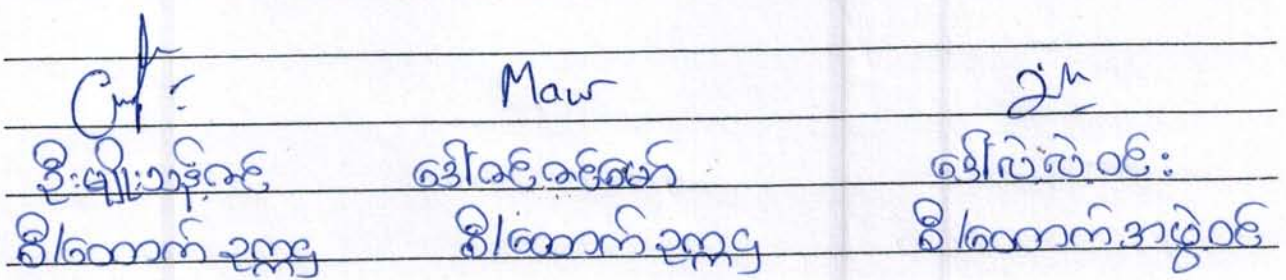 Maw
ဦးမျိုးသန့်ဇင် ဒေါ်ခင်ခင်မော် ဒေါ်လဲ့လဲ့ဝင်း
စီ/ထောက် ဥက္ကဌ စီ/ထောက် ဥက္ကဌ စီ/ထောက် အဖွဲ့ဝင်